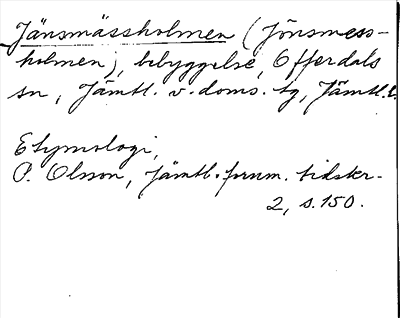 Jänsmässholmen (Jönsmess-
holmen), bebyggelse, Offerdals
sn, Jämtl. v. doms. tg, Jämtl. l.
Etymologi,
P. Olsson, Jämtl. fornm. tidskr.
2, s. 150.